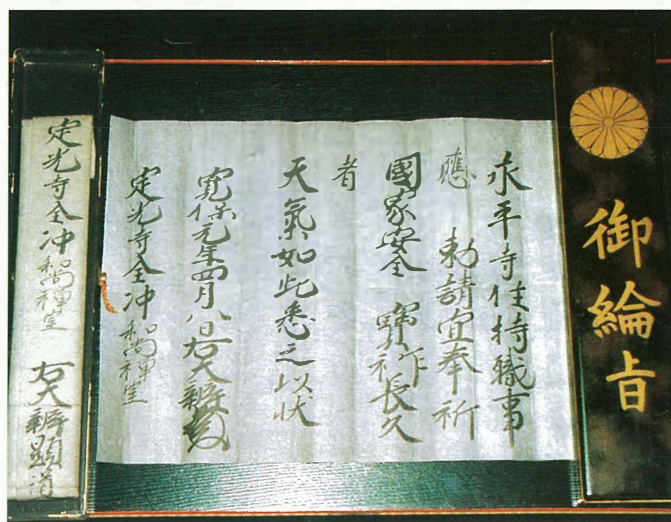 御綸旨
永平寺住持職事
應 勅請宜奉祈
國家安全 寶祚長久
者
天氣如此悉之以状
寛保元年四月八日右大辨
定光寺全冲和尚禅室
定光寺全冲和尚禅室 右大辨顕道